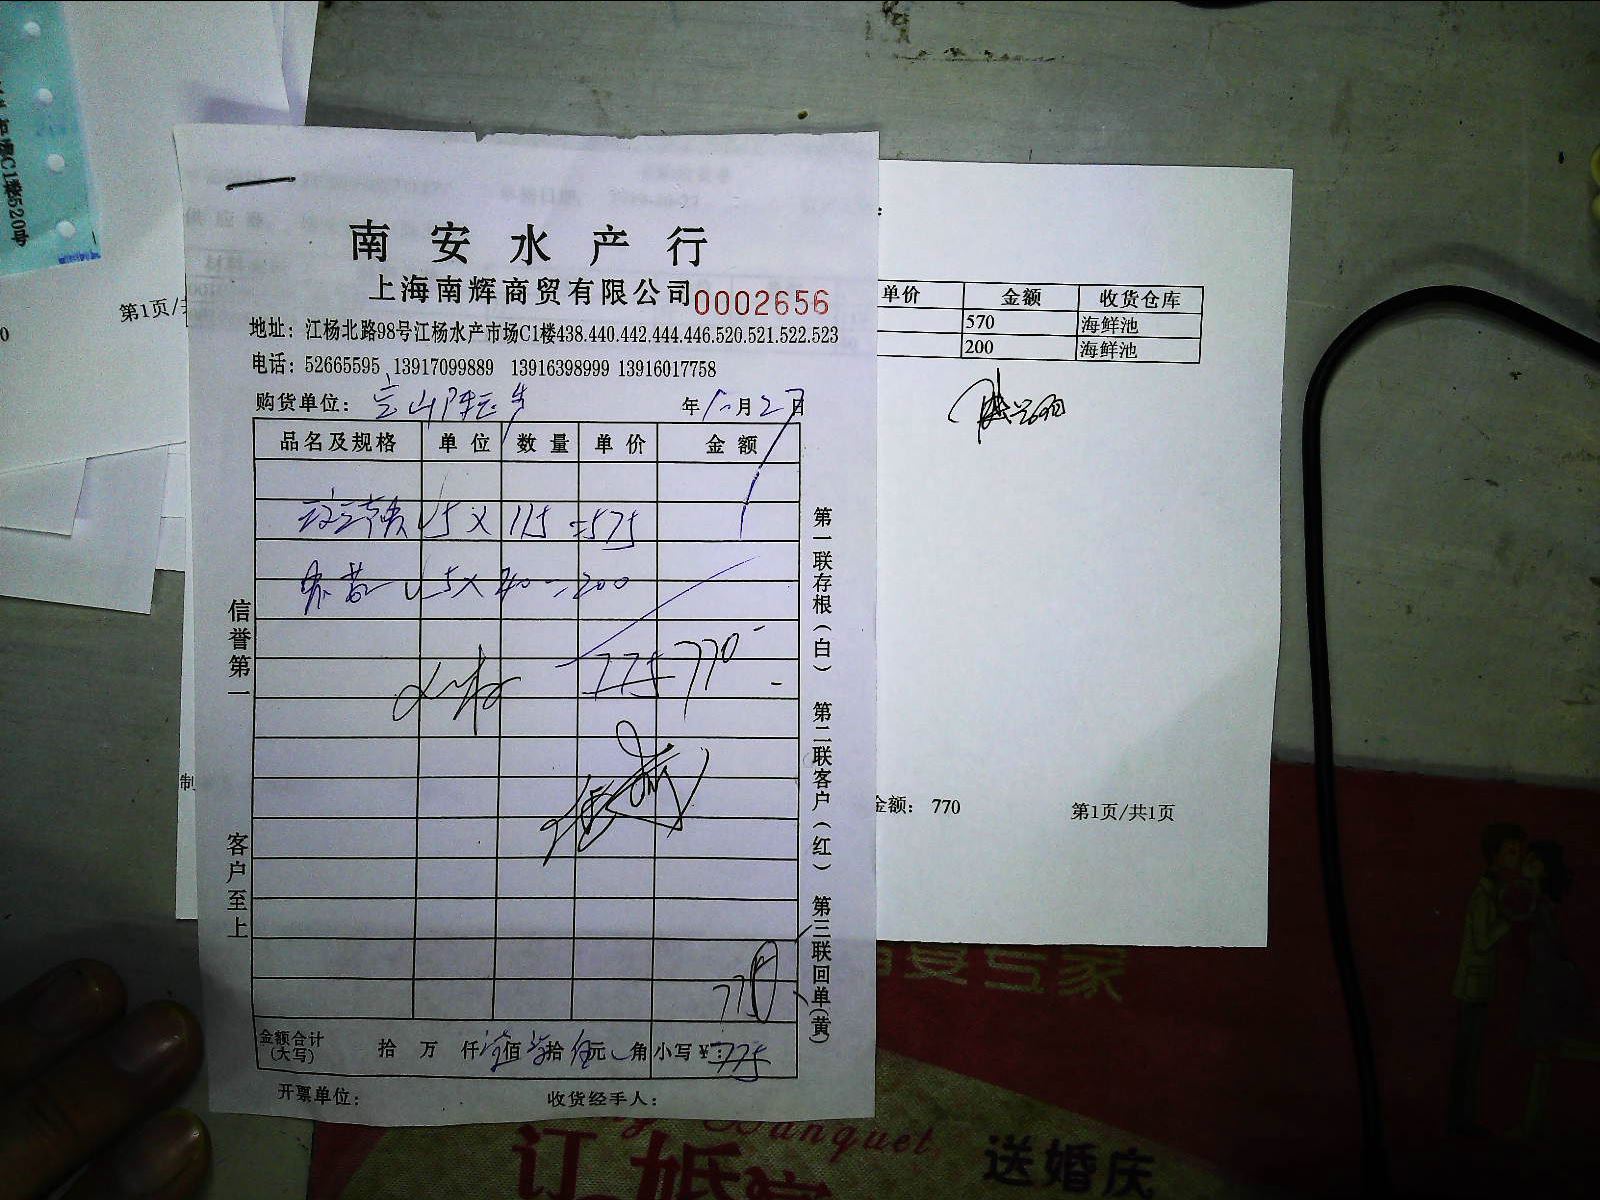 南安水产行
上海南辉商贸有限公司 0002656
地址：江杨北路98号江杨水产市场C1楼438.440.442.444.446.520.521.522.523
电话：52665595 13917099889 13916398999 13916017758
购货单位： 宝山 年 月27日
品名及规格 单位 数量 单价 金额
5 X 115 = 575
5 X 40 = 200
775 770
770
金额合计(大写) 拾 万 仟 佰 拾 元 角 小写￥：775
开票单位： 收货经手人：
信誉第一 客户至上
第一联存根（白） 第二联客户（红） 第三联回单（黄）
单价 金额 收货仓库
570 海鲜池
200 海鲜池
金额： 770 第1页/共1页
第1页/共
市场C1楼520号
制
专家
Banquet
订婚宴
送婚庆